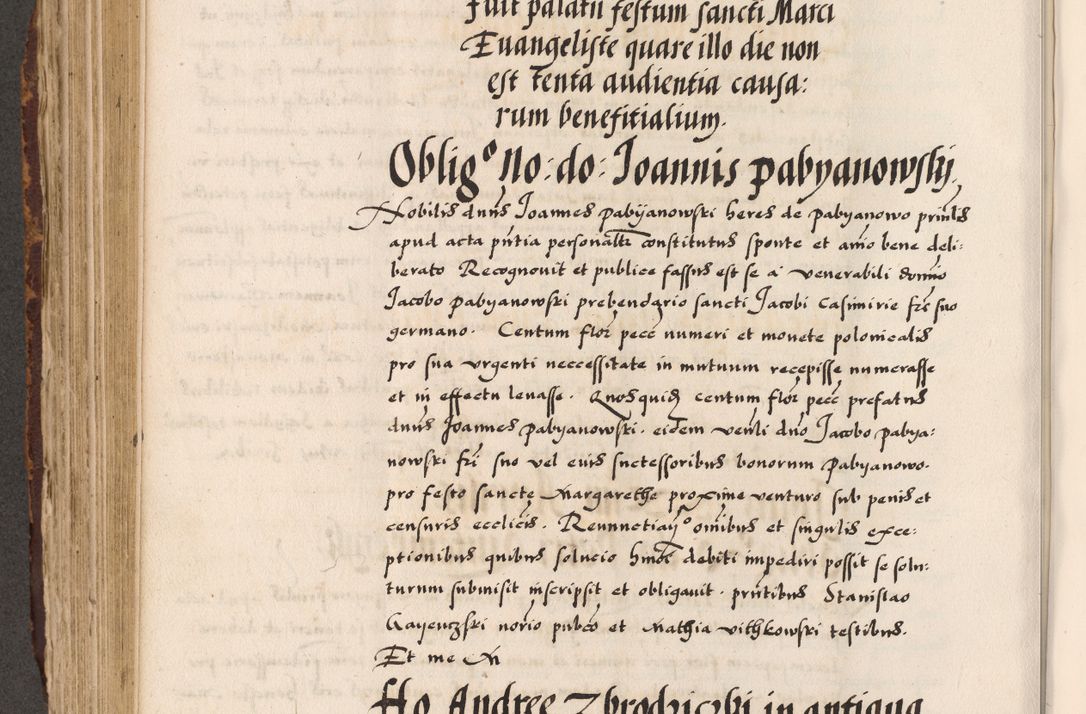 fuit palatii festum sancti Marci
Euangeliste quare illo die non
est tenta audientia causa:
rum benefitialium.
Oblig° No: do: Joannis pabyanowskj.
Nobilis dnus Joannes pabyanowski heres de pabyanowo prntis
apud acta pntia personaltr constitutus sponte et amo bene deli:
berato Recognovit et publice fassus est se a venerabili domio
Jacobo pabyanowski prebendario sancti Jacobi Casimirie fre suo
germano. Centum flor pecc numeri et monete polonicalis
pro sua vrgenti neccessitate in mutuum recepisse numerasse
et in effectu leuasse. Quosquid centum flor pecc prefatus
dnus Joannes pabyanowski. eidem venli dno Jacobo pabya:
nowski fri suo vel euis suctessoribus bonorum pabyanowo.
pro festo sancte Margarethe proxime venturo sub penis et
censuris ecclicis. Renunctiaty° omibus et singulis exce:
ptionibus quibus solucio hmoi debiti impediri possit se solu:
turum submisit inscripsit et obligauit. prntibus Stanislao
Gayewski norio pubco et Mathia vithkowski testibus.
Et me M
Ho Andree Zbrodziczki in antiqua